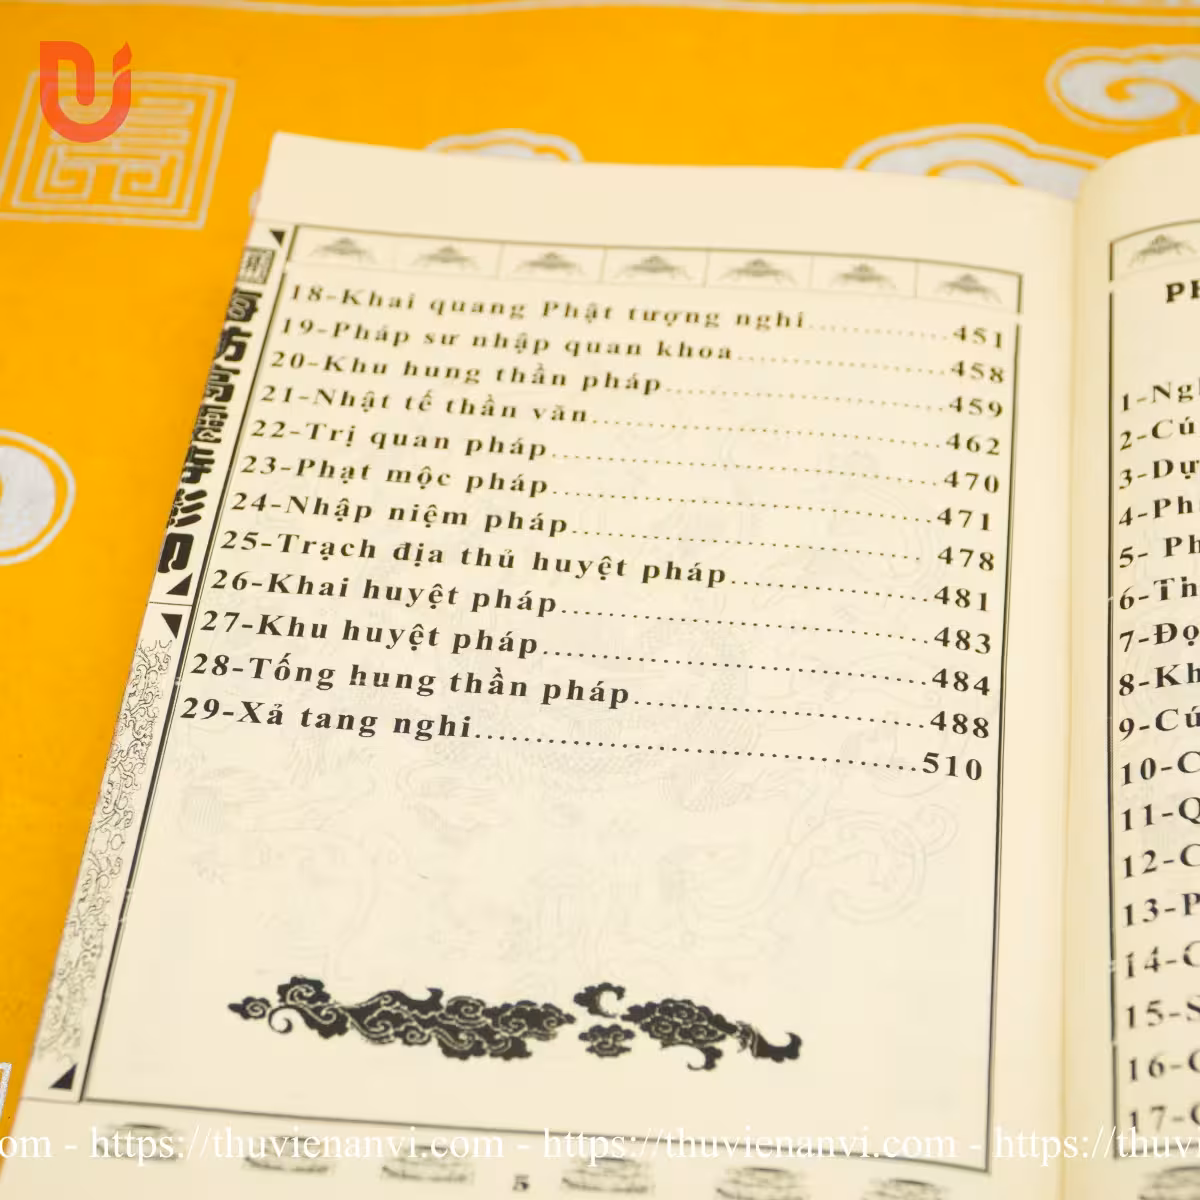 18-Khai quang Phật tượng nghi..................451
19-Pháp sư nhập quan khoa..................458
20-Khu hung thần pháp..................459
21-Nhật tế thần văn..................462
22-Trị quan pháp..................470
23-Phạt mộc pháp..................471
24-Nhập niệm pháp..................478
25-Trạch địa thủ huyệt pháp..................481
26-Khai huyệt pháp..................483
27-Khu huyệt pháp..................484
28-Tống hung thần pháp..................488
29-Xả tang nghi..................510
5
1-Ng
2-Cú
3-Dự
4-Ph
5- Ph
6-Th
7-Đọ
8-Kh
9-Cú
10-C
11-Q
12-C
13-P
14-C
15-S
16-C
17-C
om - https://thuvienanvi.com - https://thuvienanvi.com - https://thuv